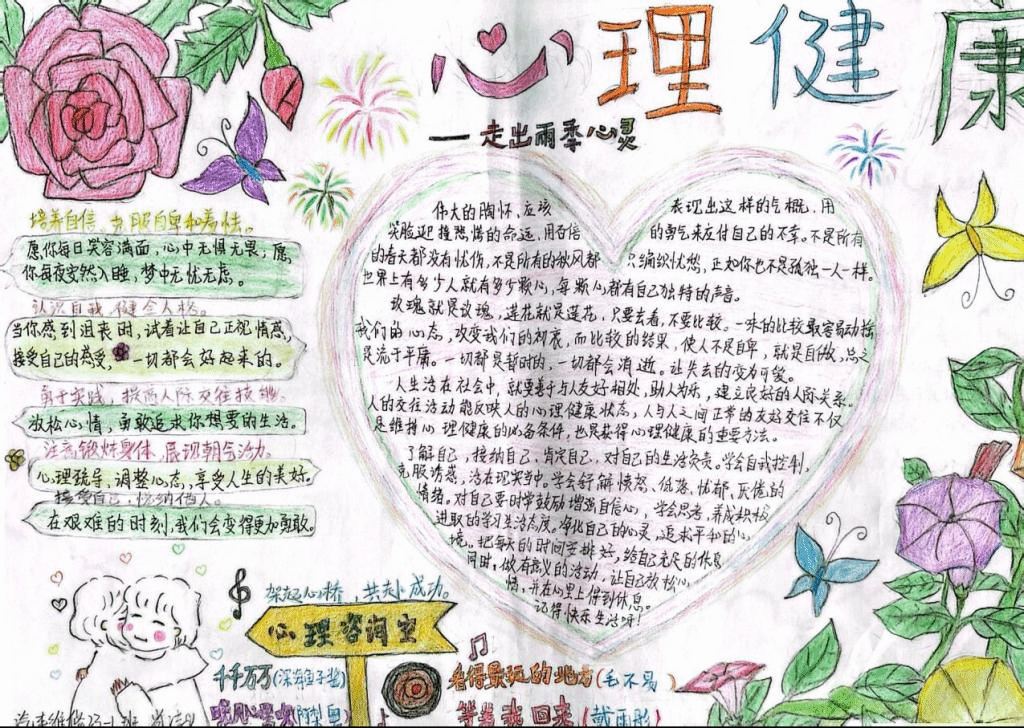 心理健康
—走出雨季心灵
培养自信、克服自卑和养性。
愿你每日笑容满面，心中无惧无畏；愿
你每夜安然入睡，梦中无忧无虑。
认识自我 健全人格。
当你感到沮丧时，试着让自己正视情感，
接受自己的感受，一切都会好起来的。
勇于实践，提高人际交往技能。
放松心情，勇敢追求你想要的生活。
注意锻炼身体、展现朝气活力。
心理疏导，调整心态，享受人生的美好。
接受自己，悦纳他人。
在艰难的时刻，我们会变得更加勇敢。
伟大的胸怀、应该表现出这样的气概，用
笑脸迎接悲惨的命运，用百倍的勇气来应付自己的不幸。不是所有
的春天都没有忧伤，不是所有的微风都只编织忧愁，正如你也不是孤独一人一样。
世界上有多少人就有多少颗心，每颗心都有自己独特的声音。
玫瑰就是玫瑰，莲花就是莲花，只要去看，不要比较。一味的比较最容易动摇
我们的心态，改变我们的初衷，而比较的结果，使人不是自卑，就是自傲，总之
是流于平庸。一切都是暂时的，一切都会消逝。让失去的变为可爱。
人生活在社会中，就要善于与人友好相处，助人为乐，建立良好的人际关系。
人的交往活动能反映人的心理健康状态，人与人之间正常的友好交往不仅
是维持心理健康的必备条件，也是获得心理健康的重要方法。
了解自己，接纳自己，肯定自己，对自己的生活负责。学会自我控制，
克服诱惑，活在现实当中。学会纾解愤怒、低落、忧郁、厌倦的
情绪。对自己要时常鼓励增强自信心，学会思考，养成积极
进取的学习生活态度。净化自己的心灵，追求平和的心
境。把每天的时间安排好，给自己充足的休息
同时，做有意义的活动，让自己放松心
情，并在心里上得到休息。
记得快乐生活呀！
架起心桥，共赴成功。
心理咨询室
千千万万(深海鱼子酱)
看得最远的地方(毛不易)
等着我回来(戴雨彤)